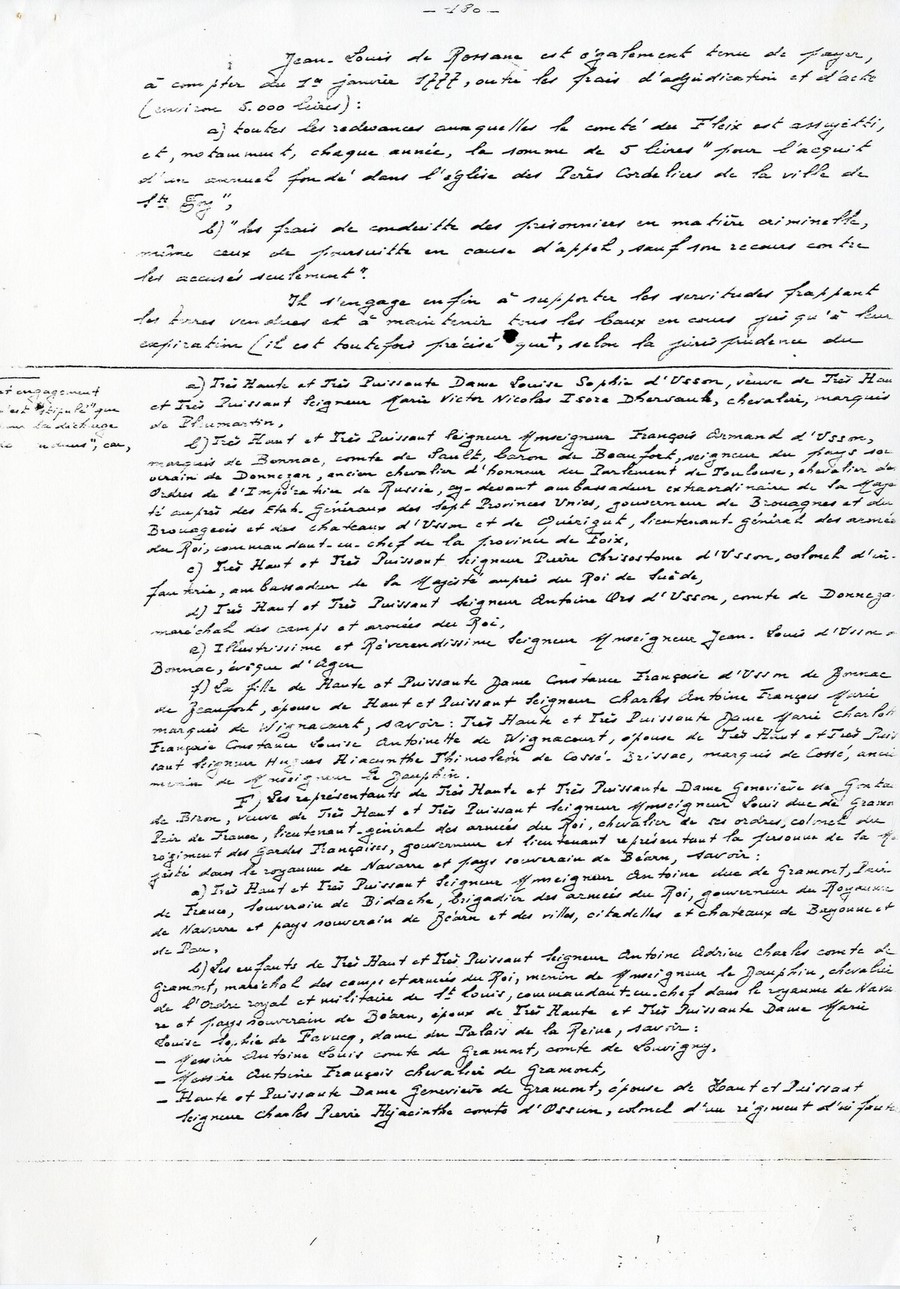 — 180 —
Jean-Louis de Rossane est également tenu de payer,
à compter du 1er janvier 1777, outre les frais d'adjudication et d'acte
(environ 5.000 livres) :
a) toutes les redevances auxquelles le comté du Fleix est assujetti,
et, notamment, chaque année, la somme de 5 livres "pour l'acquit
d'un annuel fondé dans l'église des Pères Cordeliers de la ville de
Ste Foy",
b) "les frais de conduitte des prisonniers en matière criminelle,
même ceux de poursuitte en cause d'appel, sauf son recours contre
les accusés seulement".
Il s'engage enfin à supporter les servitudes frappant
les terres vendues et à maintenir tous les baux en cours jusqu'à leur
expiration (il est toutefois précisé que+, selon la jurisprudence du
engagement
"stipulé" que
la décharge
car,
a) Très Haute et Très Puissante Dame Louise Sophie d'Usson, veuve de Très Hau
et Très Puissant Seigneur Marie Victor Nicolas Isore Dhervault, chevalier, marquis
de Plumartin,
b) Très Haut et Très Puissant Seigneur Monseigneur François Armand d'Usson,
marquis de Bonnac, comte de Sault, baron de Beaufort, seigneur du pays sou
verain de Donnezan, ancien chevalier d'honneur du Parlement de Toulouse, chevalier des
Ordres de l'Impératrice de Russie, cy-devant ambassadeur extraordinaire de Sa Majes
té auprès des Etats Généraux des Sept Provinces Unies, gouverneur de Brouagnes et du
Brouageois et des chateaux d'Usson et de Quérigut, lieutenant-général des armées
du Roi, commandant-en-chef de la province de Foix,
c) Très Haut et Très Puissant Seigneur Pierre Chrisostome d'Usson, colonel d'in-
fanterie, ambassadeur de Sa Majesté auprès du Roi de Suède,
d) Très Haut et Très Puissant Seigneur Antoine Ors d'Usson, comte de Donneza
maréchal des camps et armées du Roi,
e) Illustrissime et Révérendissime Seigneur Monseigneur Jean-Louis d'Usson
Bonnac, évêque d'Agen
f) La fille de Haute et Puissante Dame Constance Françoise d'Usson de Bonnac
de Beaufort, épouse de Haut et Puissant Seigneur Charles Antoine François Marie
marquis de Wignacourt, savoir : Très Haute et Très Puissante Dame Marie Charlott
Françoise Constance Louise Antoinette de Wignacourt, épouse de Très Haut et Très Puis
sant Seigneur Hugues Hiacynthe Thimoléon de Cossé-Brissac, marquis de Cossé, anci
menin de Monseigneur le Dauphin.
F) Les représentants de Très Haute et Très Puissante Dame Geneviève de Gonta
de Biron, veuve de Très Haut et Très Puissant Seigneur Monseigneur Louis duc de Gramon
Pair de France, lieutenant-général des armées du Roi, chevalier de ses ordres, colonel du
régiment des Gardes Françaises, gouverneur et lieutenant représentant la personne de Sa Ma
jesté dans le royaume de Navarre et pays souverain de Béarn, savoir :
a) Très Haut et Très Puissant Seigneur Monseigneur Antoine duc de Gramont, Pair
de France, Souverain de Bidache, brigadier des armées du Roi, gouverneur du Royaume
de Navarre et pays souverain de Béarn et des villes, citadelles et chateaux de Bayonne et
de Pau.
b) Les enfants de Très Haut et Très Puissant Seigneur Antoine Adrien Charles comte de
Gramont, maréchal des camps et armées du Roi, menin de Monseigneur le Dauphin, chevalie
de l'Ordre royal et militaire de St Louis, commandant-en-chef dans le royaume de Nava
re et pays souverain de Béarn, époux de Très Haute et Très Puissante Dame Marie
Louise Sophie de Faoucq, dame du Palais de la Reine, savoir :
— Messire Antoine Louis comte de Gramont, comte de Louvigny,
— Messire Antoine François chevalier de Gramont,
— Haute et Puissante Dame Geneviève de Gramont, épouse de Haut et Puissant
Seigneur Charles Pierre Hyacinthe comte d'Ossun, colonel d'un régiment d'infante